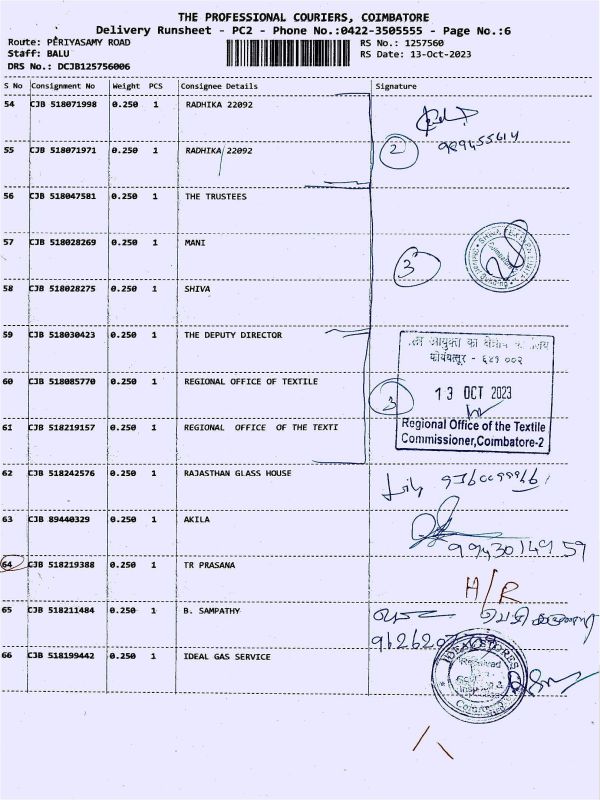 THE PROFESSIONAL COURIERS, COIMBATORE
Delivery Runsheet - PC2 - Phone No.:0422-3505555 - Page No.:6
Route: PERIYASAMY ROAD RS No.: 1257560
Staff: BALU RS Date: 13-Oct-2023
DRS No.: DCJB125756006
S No Consignment No Weight PCS Consignee Details Signature
54 CJB 518071998 0.250 1 RADHIKA 22092
55 CJB 518071971 0.250 1 RADHIKA 22092 2
56 CJB 518047581 0.250 1 THE TRUSTEES
57 CJB 518028269 0.250 1 MANI 3
58 CJB 518028275 0.250 1 SHIVA
59 CJB 518030423 0.250 1 THE DEPUTY DIRECTOR
कोयंबत्तूर - ६४१ ००२
60 CJB 518085770 0.250 1 REGIONAL OFFICE OF TEXTILE 3 13 OCT 2023
61 CJB 518219157 0.250 1 REGIONAL OFFICE OF THE TEXTI Regional Office of the Textile
Commissioner,Coimbatore-2
62 CJB 518242576 0.250 1 RAJASTHAN GLASS HOUSE
63 CJB 89440329 0.250 1 AKILA
9943014959
64 CJB 518219388 0.250 1 TR PRASANA H/R
65 CJB 518211484 0.250 1 B. SAMPATHY
66 CJB 518199442 0.250 1 IDEAL GAS SERVICE